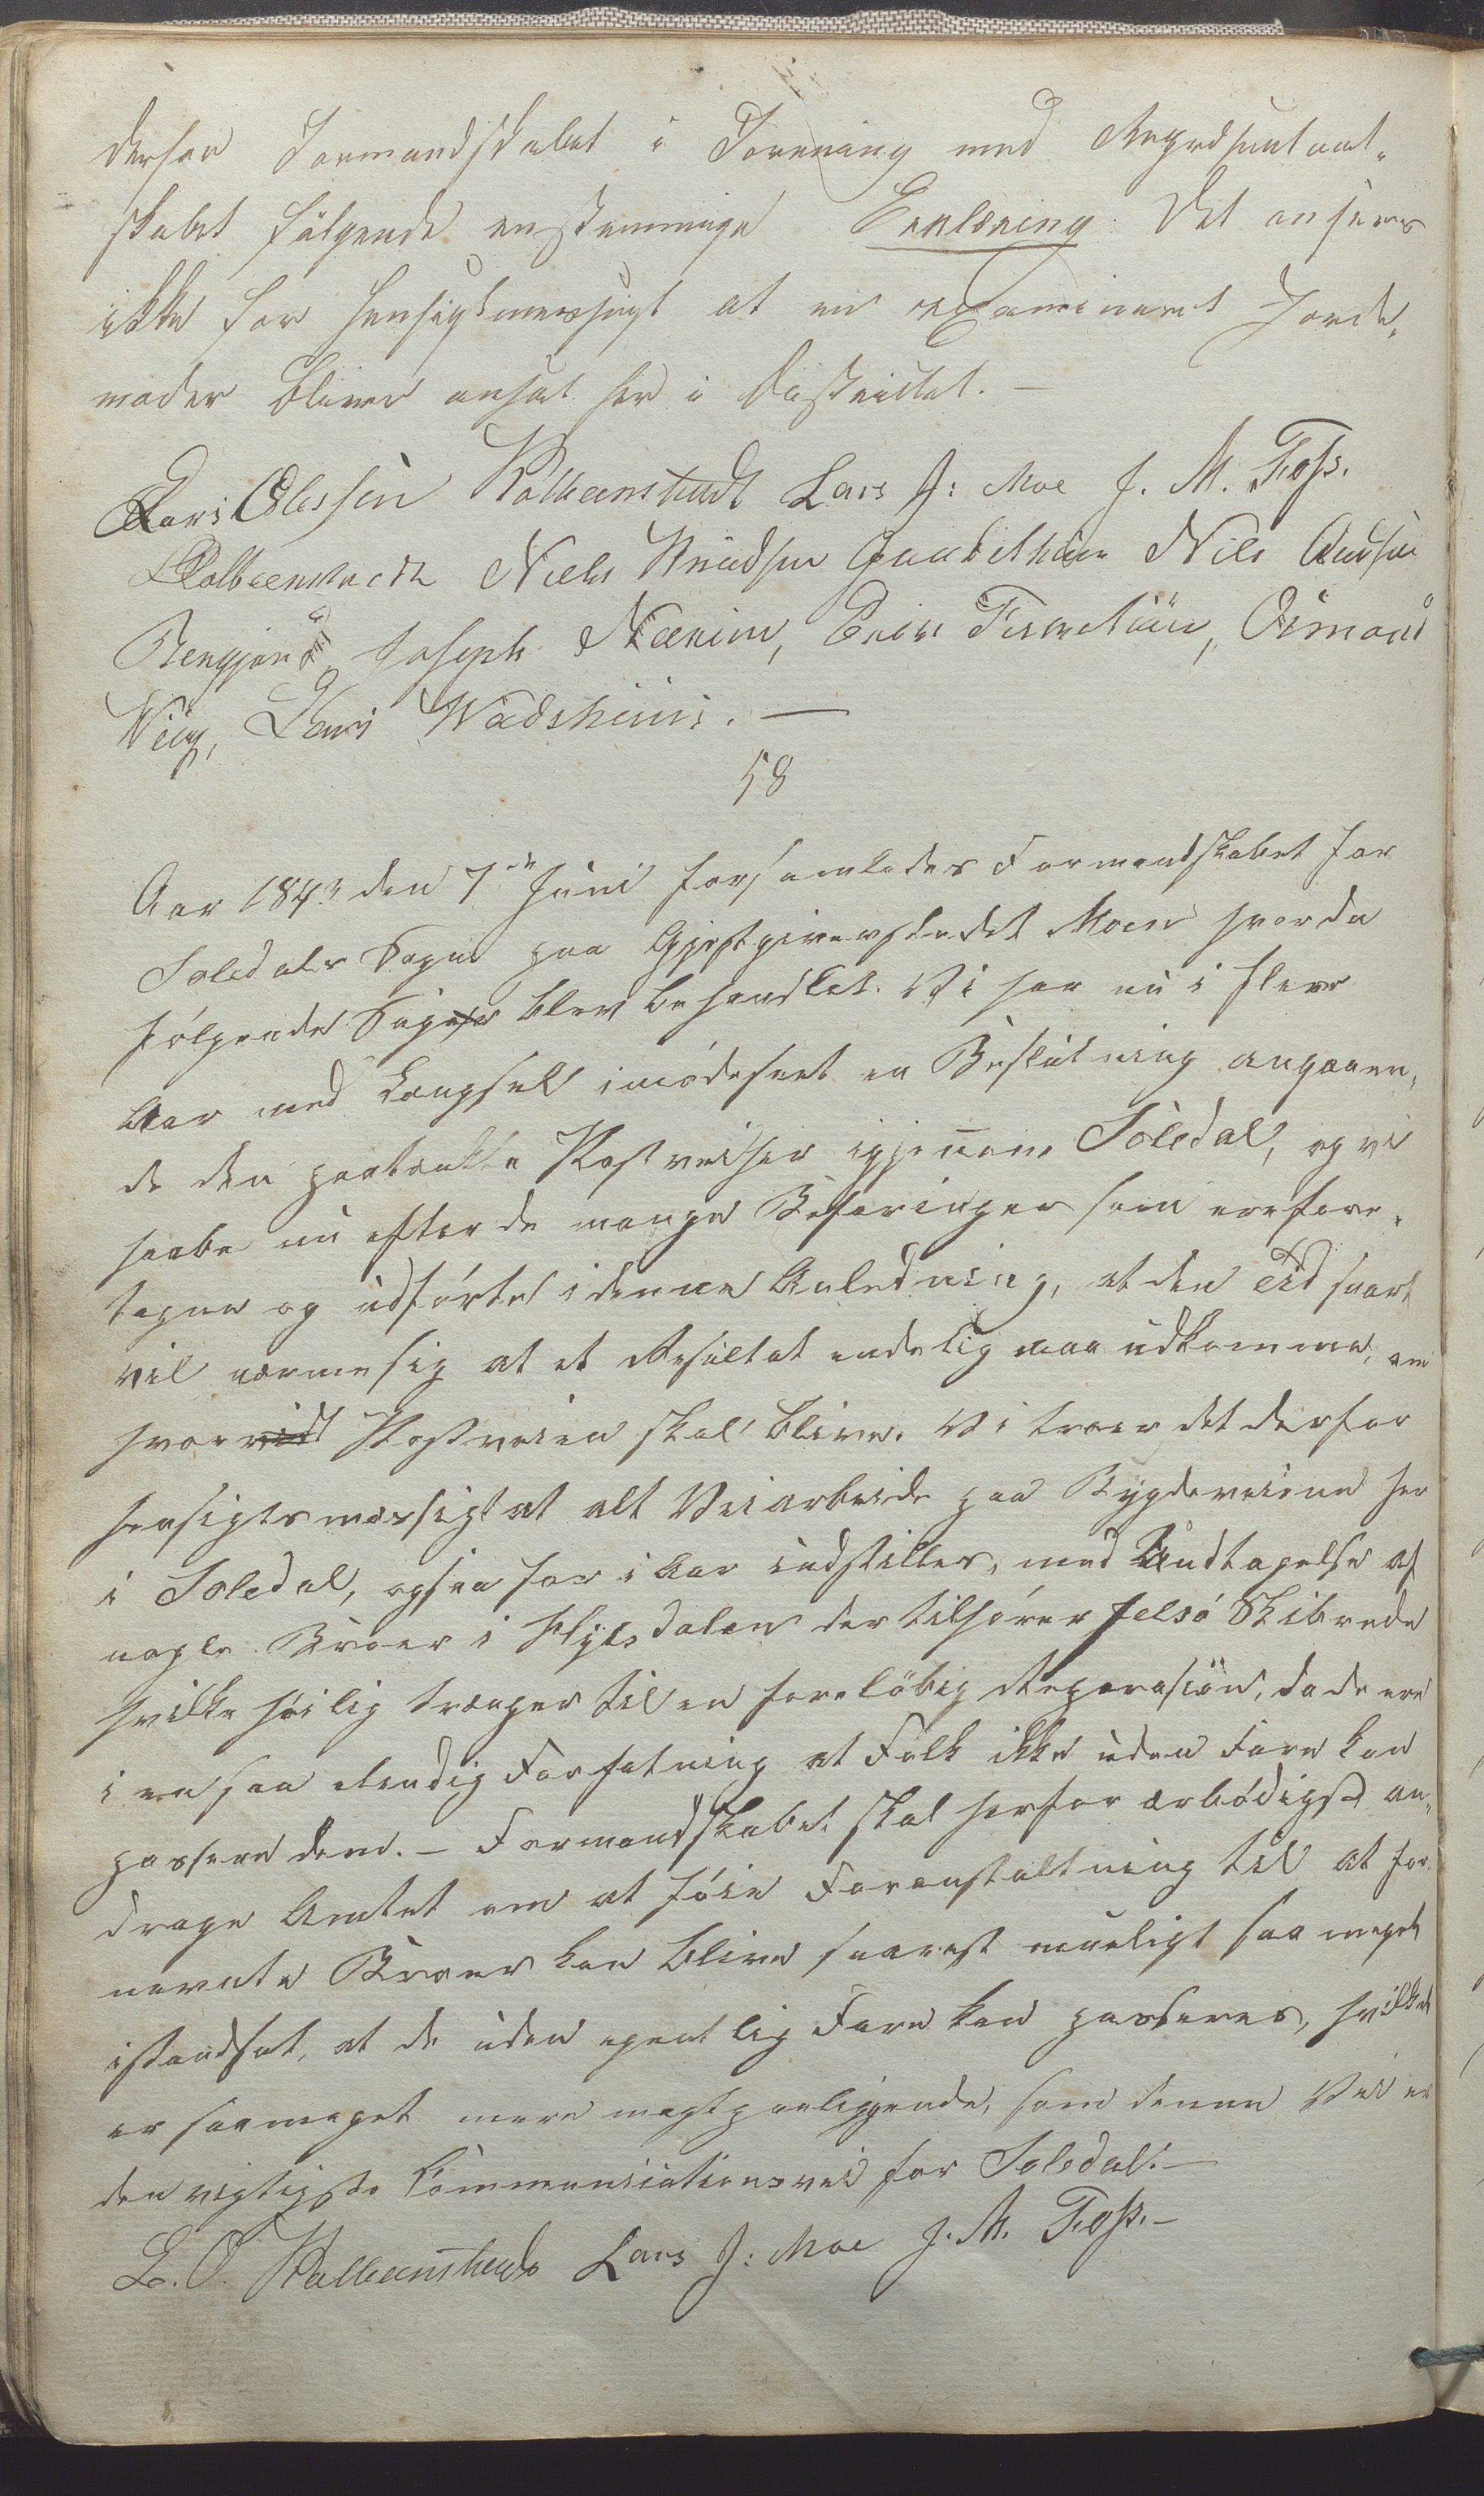 derfor Formandskabet i Forening med Repræsentant-
skabet følgende enstemmige Erklæring: Det ansees
ikke for hensigtmæssigt at en examineret Jorde-
moder bliver ansat her i Districtet. —
Lars Olessen Kolbeenstvedt Lars J: Moe J. M. Foss.
Kolbeenstvedt Niels Knudsen Niels Knudsen
Joseph Næriim, Osmond
Viig, Lars Wadsheiin. —
58
Aar 1843 den 7de Juni forsamledes Formandskabet for
Soledals Sogn paa Gjestgiverstedet Moen hvor da
følgende Sager blev behandlet. Vi har nu i flere
Aar med Længsel imødeseet en Beslutning angaaen-
de den paatænkte Postvei her igjennem Soledal, og vi
haabe nu efter de mange Befaringer som ere fore-
tagne og udførte i denne Anledning, at den Tid snart
vil nærme sig at et Resultat endelig maa udkomme, om
hvorvidt Postveien skal blive. Vi troer det derfor
hensigtsmæssigt at alt Veiarbeide paa Bygdeveiene her
i Soledal, ogsaa for i Aar indstilles, med Undtagelse af
nogle Broer i Hylsdalen der tilhører Jelsø Skibrede
hvilke høilig trænger til en foreløbig Reparasion, da de ere
i en saa elendig Forfatning at Folk ikke uden Fare kan
passere dem. — Formandskabet skal herfor ærbødigst an-
drage Amtet om at føie Foranstaltning til at for-
nævnte Broer kan blive snarest mueligt saa meget
istandsat, at de uden egentlig Fare kan passeres, hvilket
er saameget mere magtpaaliggende, som denne Vei er
den vigtigste Communicationsvei for Soledal. —
L. O. Kolbeenstvedt Lars J: Moe J. M. Foss. —